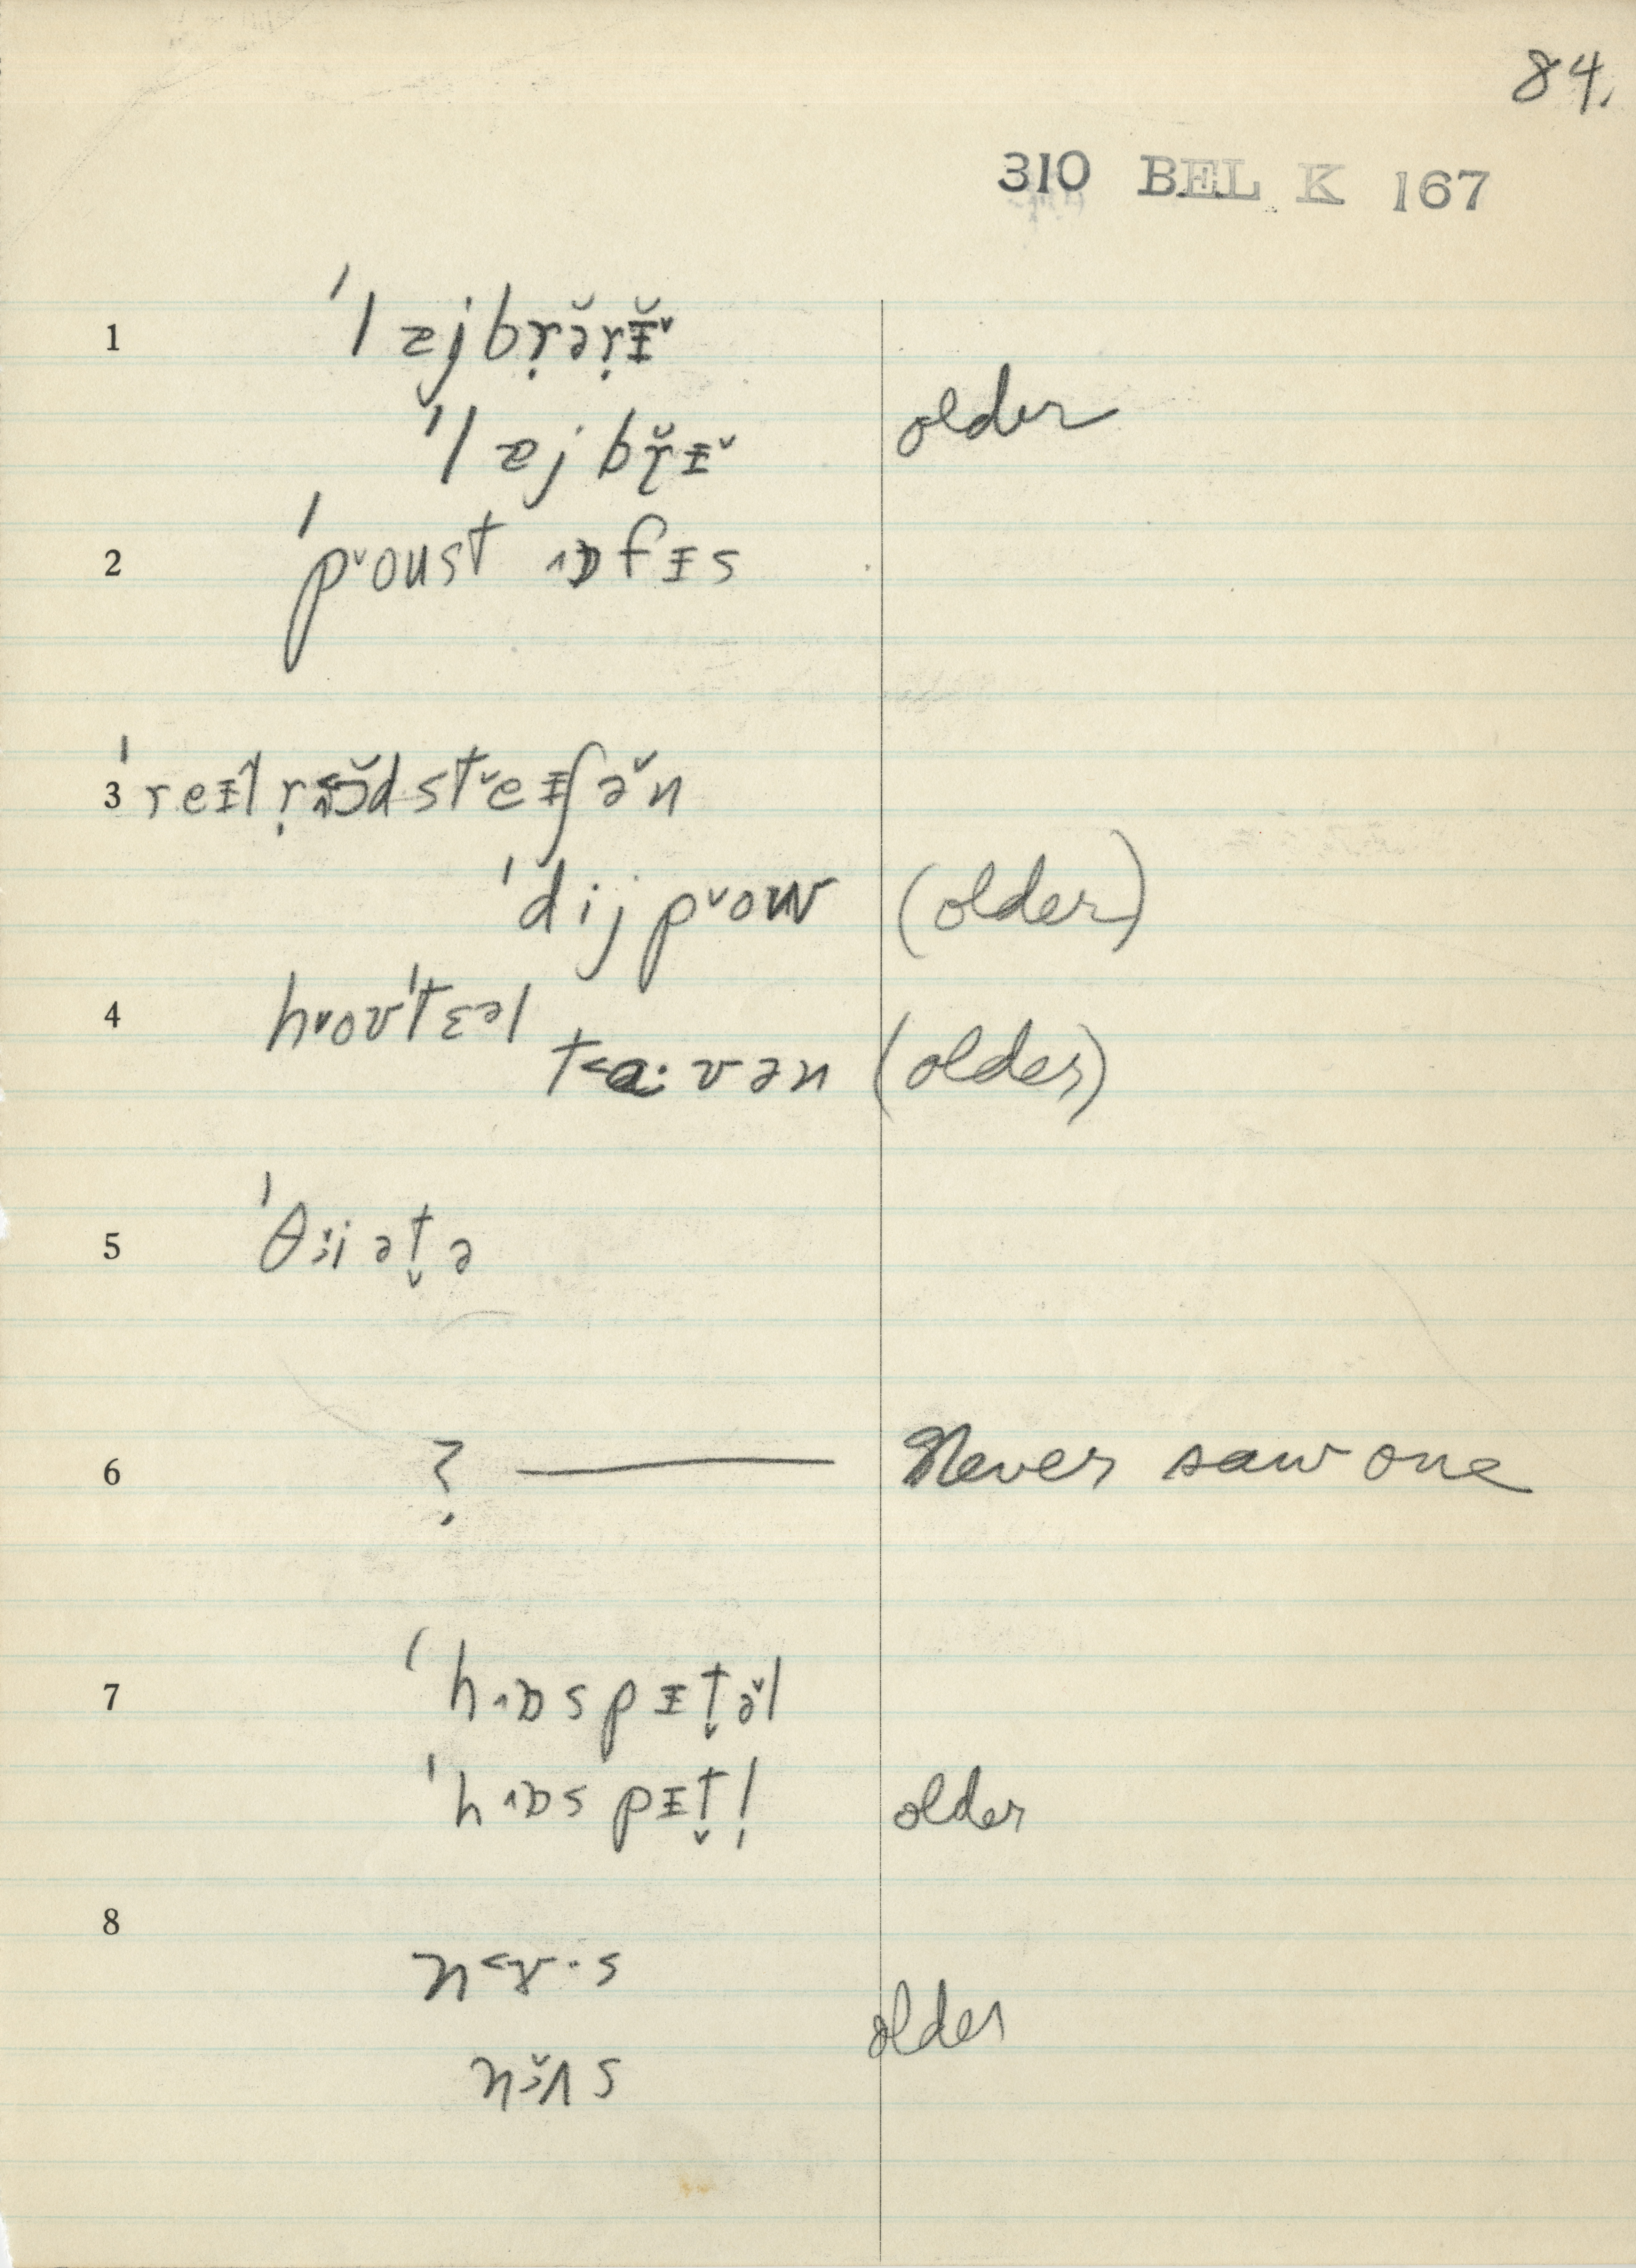 84.
310 BEL K 167
1 ˈlɐjbr̩ə̆r̩ɪ̆˅
ˈlɐjbr̩̆ɪ˅ older
2 ˈp˅oust ˄ɒfɪs
3 ˈreɪlr̩˂ɔ̆d st˅eɪʃə̆n
ˈdijp˅ow (older)
4 h˅oʊˈtɛəl
t˂a·vən (older)
5 ˈθɜ̆iət̬ə
6 ? — Never saw one
7 ˈh˄ɒspɪt̬ə̆l
ˈh˄ɒspɪt̬l̩ older
8 n˂ɤ·s
older
nɜ̆ʌs